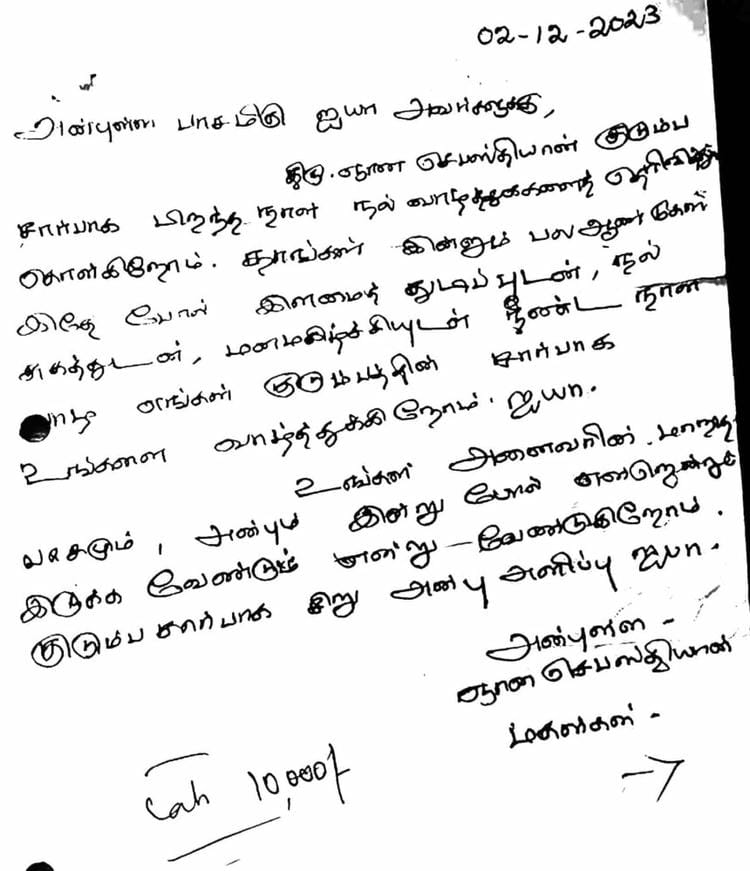 02-12-2023
அன்புள்ள பாசமிகு ஐயா அவர்களுக்கு,
திரு. ஞான செபஸ்தியான் குடும்ப
சார்பாக பிறந்த நாள் நல் வாழ்த்துக்களைத் தெரிவித்து
கொள்கிறோம். தாங்கள் இன்னும் பல ஆண்டுகள்
இதே போல் இளமைத் துடிப்புடன், நல்
சுகத்துடன், மனமகிழ்ச்சியுடன் நீண்ட நாள்
எங்கள் குடும்பத்தின் சார்பாக
உங்களை வாழ்த்துக்கிறோம். ஐயா.
உங்கள் அனைவரின்
அன்பும் இன்று போல் என்றென்றும்
இருக்க வேண்டும் என்று வேண்டுகிறோம்.
குடும்ப சார்பாக சிறு அன்பு அளிப்பு ஐயா.
அன்புள்ள -
ஞான செபஸ்தியான்
மகள்கள் -
Cah 10,000/